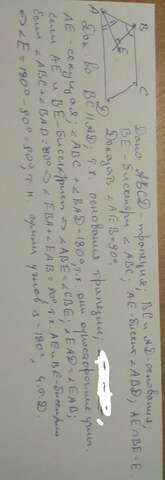 B
C
A
D
E
Дано: ABCD-трапеция; BC и AD-основания,
BE-биссектр ∠ABC; AE-бисект ∠ABD; AE∩BE=E.
Доказать, ∠AEB=90°
Док-во BC∥AD, т.к. основания трапеции,
AE-секущая. ∠ABC+∠BAD=180° т.к они односторонние углы.
если AE и BE-биссектрисы ⇒ ∠ABE=∠CBE; ∠EAD=∠EAB;
∠ABC+∠BAD= ⇒ ∠EBA+∠EAB= т.к. AE и BE-биссектрисы
⇒ ∠E=180°-90°=90°, т.к. сумма углов Δ-180°. ч.т.д.